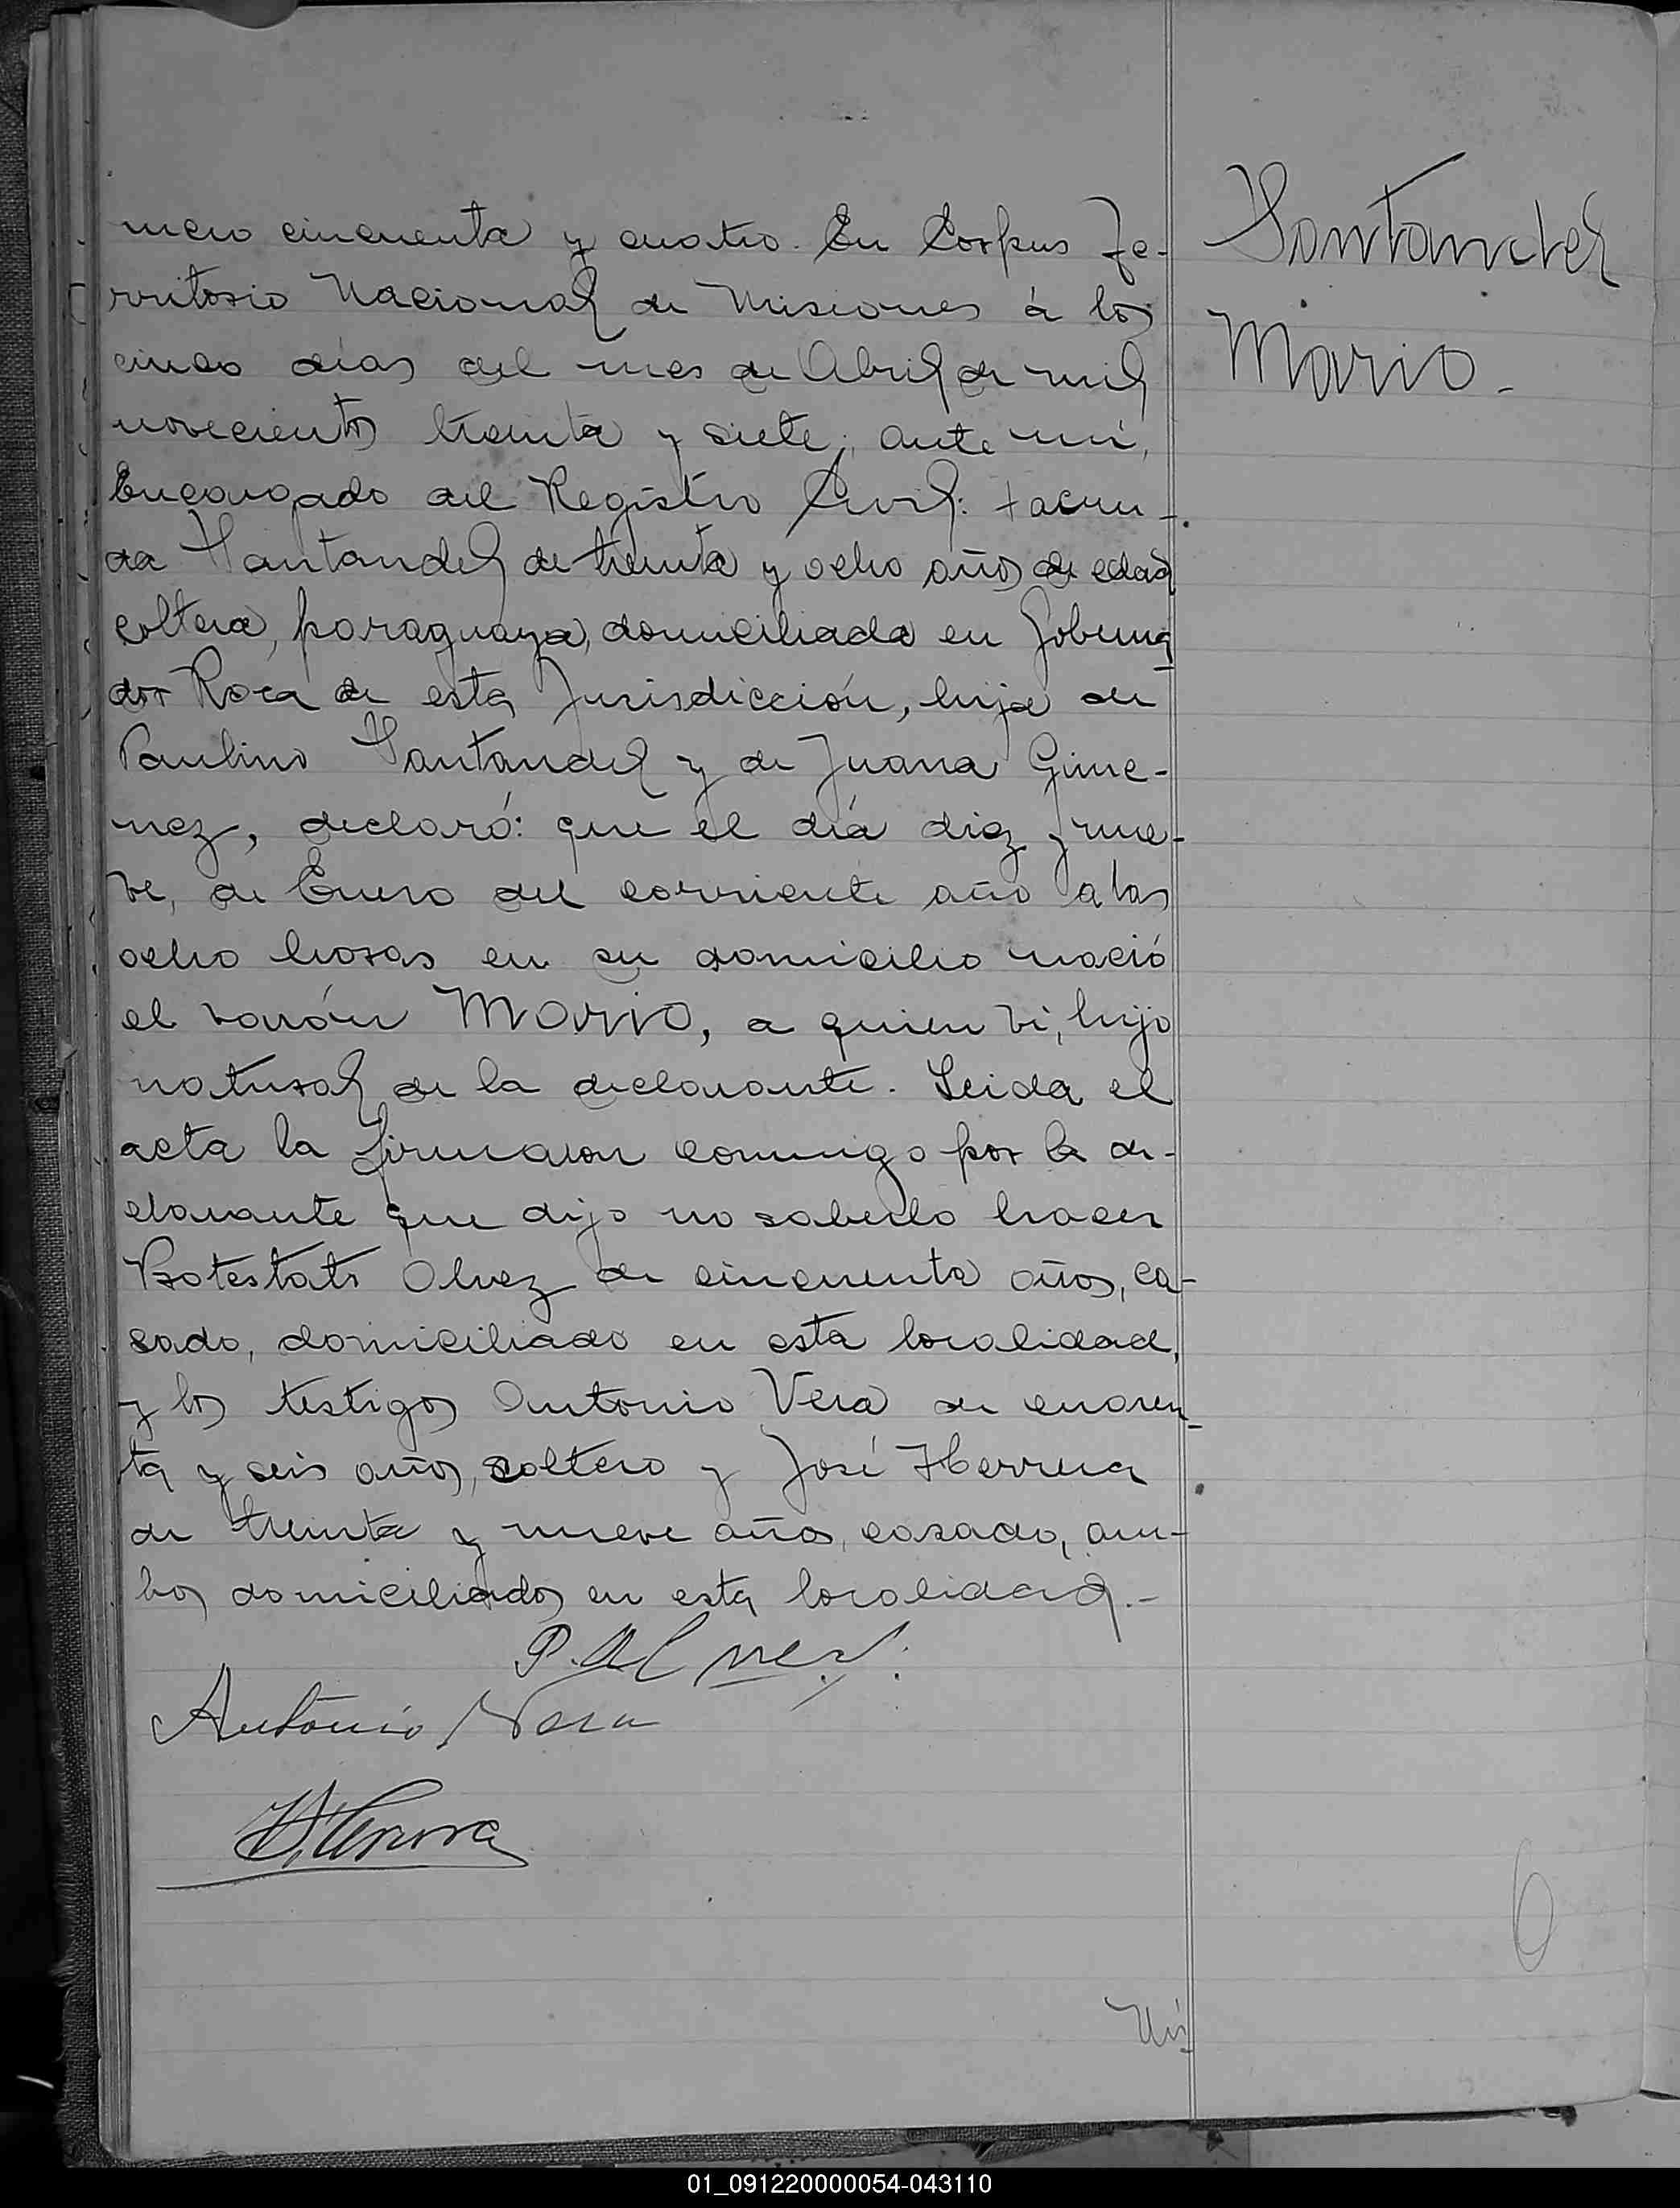 mero cincuenta y cuatro. En Corpus Te-
rritorio Nacional de Misiones á los
cinco días del mes de Abril de mil
novecientos treinta y siete, ante mí,
Encargado del Registro Civil: Facun-
da Santander de treinta y ocho años de edad
soltera, paraguaya, domiciliada en Goberna
dor Roca de esta Jurisdicción, hija de
Paulino Santander y de Juana Gime-
nez, declaró: que el día diez y nue-
ve, de Enero del corriente año a las
ocho horas en su domicilio nació
el varón Mario, a quien vi, hijo
natural de la declarante. Leida el
acta la firmaron conmigo por la de-
clarante que dijo no saberlo hacer
Olvez de cincuenta años, ca-
sado, domiciliado en esta localidad,
y los testigos Antonio Vera de cuaren-
ta y seis años, soltero y José Herrera
de treinta y nueve años, casado, am-
bos domiciliados en esta localidad.-
Antonio Vera
Nú
Santander
Mario.-
6
01_091220000054-043110